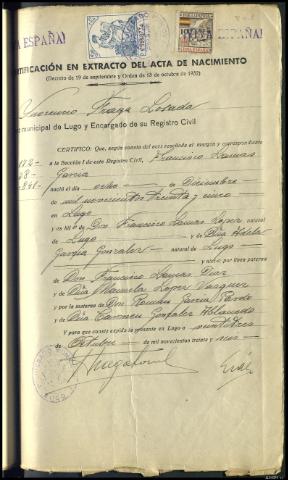 A ESPAÑA!
ESPAÑA!
CERTIFICACIÓN EN EXTRACTO DEL ACTA DE NACIMIENTO
(Decreto de 19 de septiembre y Orden de 13 de octubre de 1932)
Fraga Losada
municipal de Lugo y Encargado de su Registro Civil
CERTIFICO: Que, según consta del acta reseñada al margen y correspondiente
a la Sección 1.ª de este Registro Civil, Francisco Lamas
García
nació el día ocho de Diciembre
de mil novecientos treinta y cinco
en Lugo
y es hijo de Don Francisco Lamas López natural
de Lugo y de Dña Adela
García González natural de Lugo
y nieto por línea paterna
de Don Francisco Lamas Díaz
y de Dña Manuela López Vázquez
y por la materna de Don Ramón García Pardo
y de Dña Carmen González
Y para que conste expido la presente en Lugo a veintitrés
de Octubre de mil novecientos treinta y